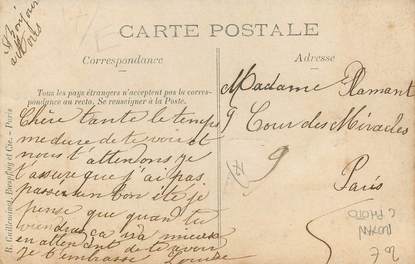 Bonjour
à tous
CARTE POSTALE
Correspondance
Adresse
Tous les pays étrangers n'acceptent pas la corres-
pondance au recto. Se renseigner à la Poste.
Chère tante le temps
me dure de te voir et
nous t'attendons je
t'assure que j'ai pas
passer un bon été je
pense que quan tu
viendra ça ira mieux
en attendant de te avoir
je t'embrasse Louise
Madame Flamant
9 Cour des Miracles
9
Paris
R. Guilleminot, Bœspflug et Cie. - Paris